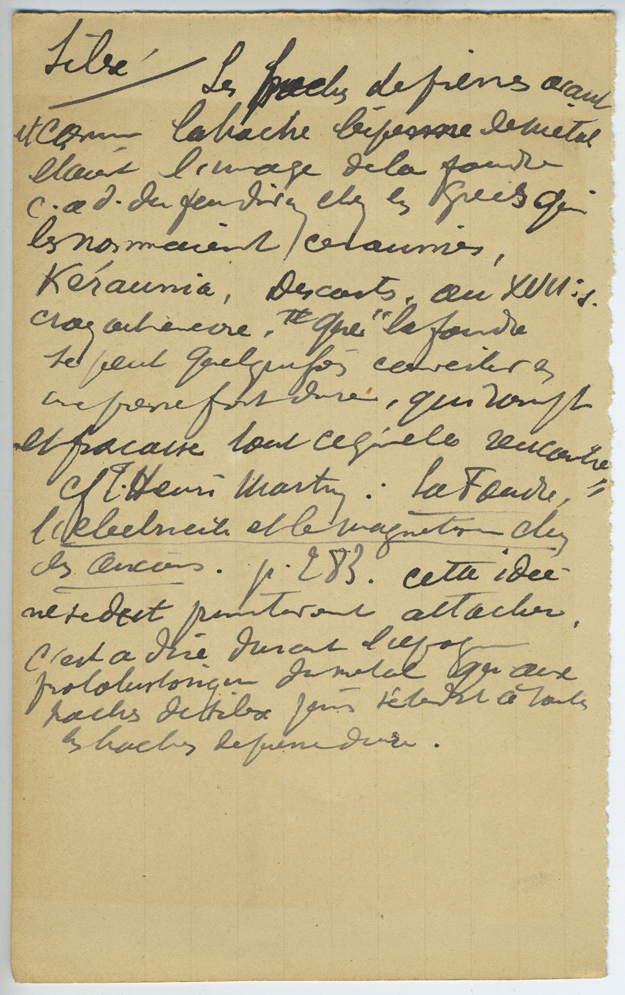 Silex
Les haches de pierres avant
et comme la hache bipenne de métal
étaient l'image de la foudre
c. a d. du feu divin chez les Grecs qui
les nommaient ceraunies,
Kéraunia, Descartes, au XVIIe s.
croyait encore, "que" la foudre
se peut quelquefois convertir en
une pierre fort dure, qui rompt
et fracasse tout ce qu'elle rencontre"
cf T. Henri Martin : La Foudre,
l'électricité et le magnétisme chez
les Anciens. p. 283. cette idée
ne se dut primitivement attacher,
c'est a dire durant l'époque
protohistorique du métal qu'aux
haches de silex puis s'étendit à toutes
les haches de pierre dure.